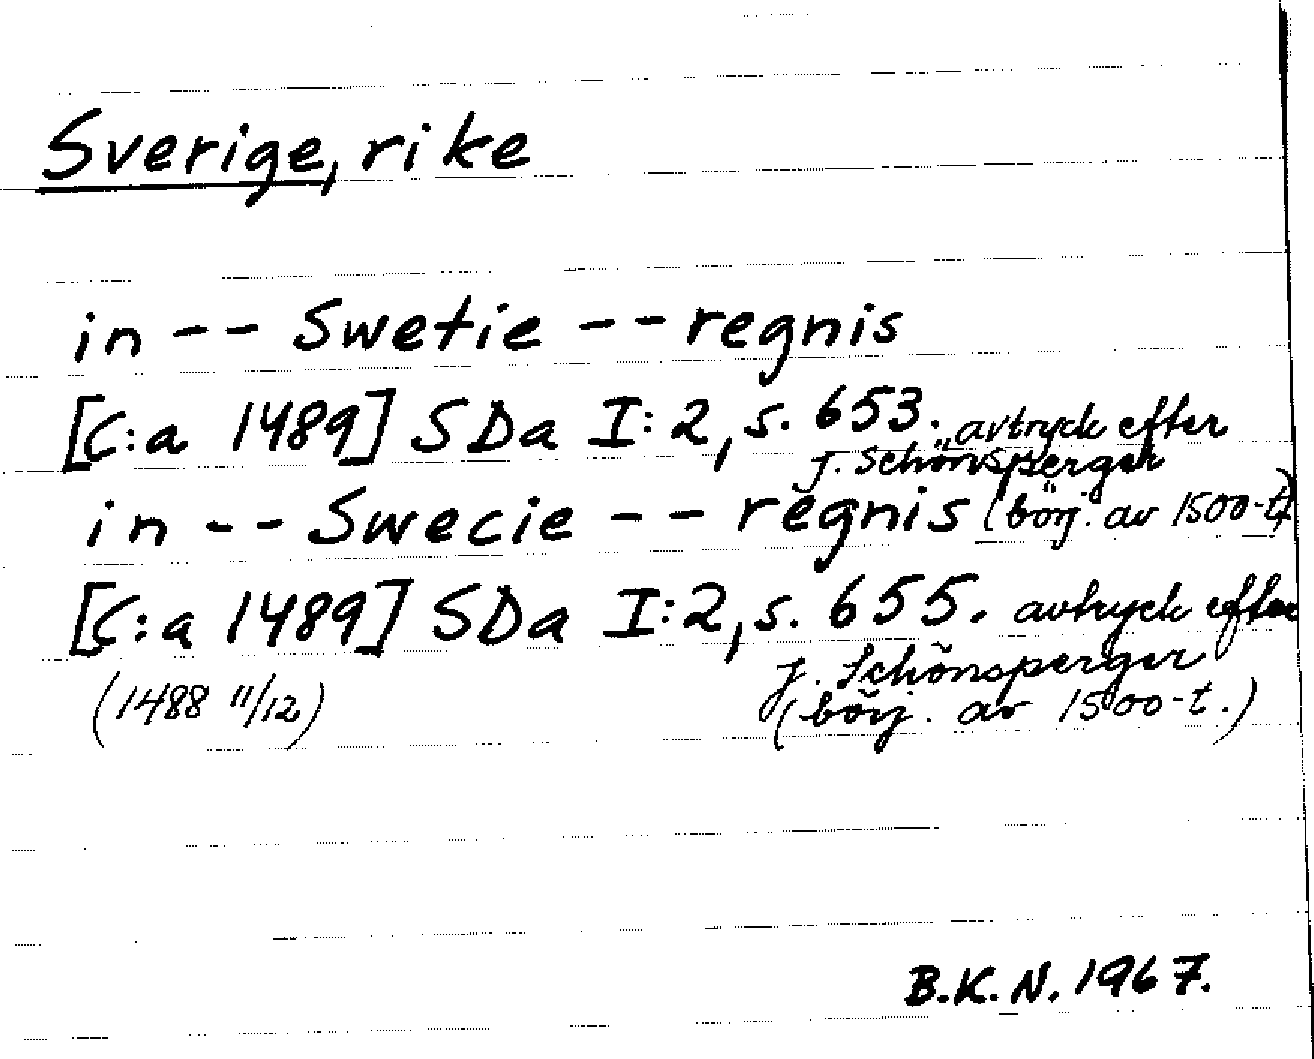 Sverige, rike
in -- Swetie -- regnis
[C:a 1489] SDa I:2, s. 653. avtryck efter
J. Schönsperger
in -- Swecie -- regnis (börj. av 1500-t)
[C:a 1489] SDa I:2, s. 655. avtryck efter
J. Schönsperger
(1488 11/12) (börj. av 1500-t.)
B.K.N. 1967.